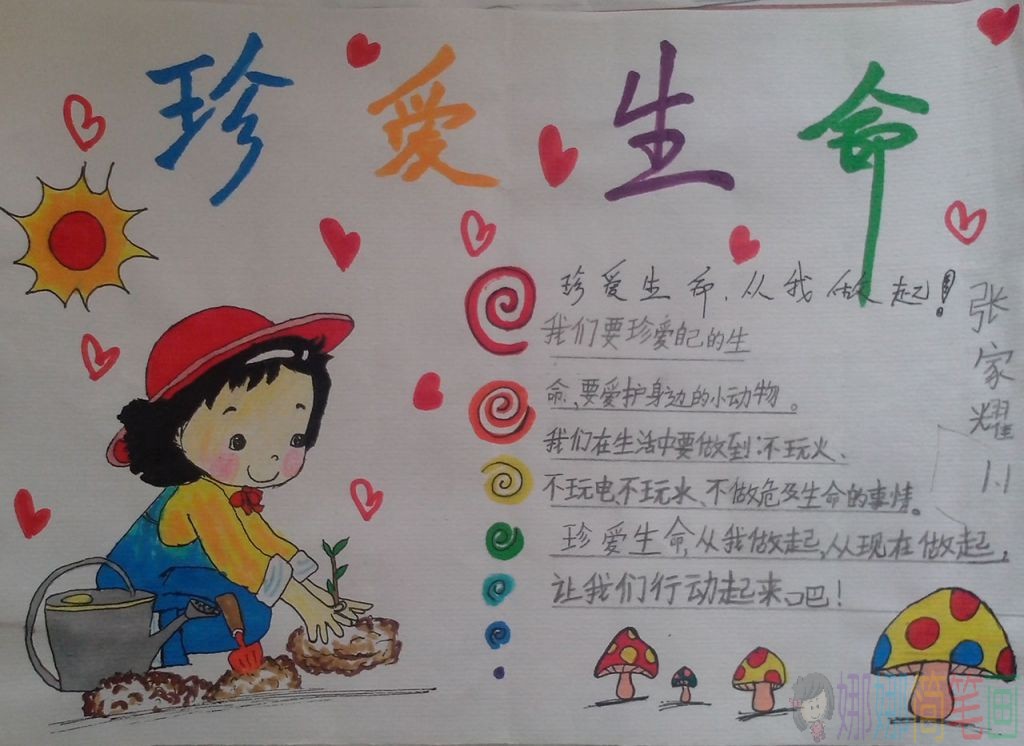 珍爱生命
珍爱生命,从我做起!
我们要珍爱自己的生
命,要爱护身边的小动物。
我们在生活中要做到:不玩火、
不玩电、不玩水、不做危及生命的事情。
珍爱生命,从我做起,从现在做起,
让我们行动起来吧!
张家耀 1.1
娜娜简笔画